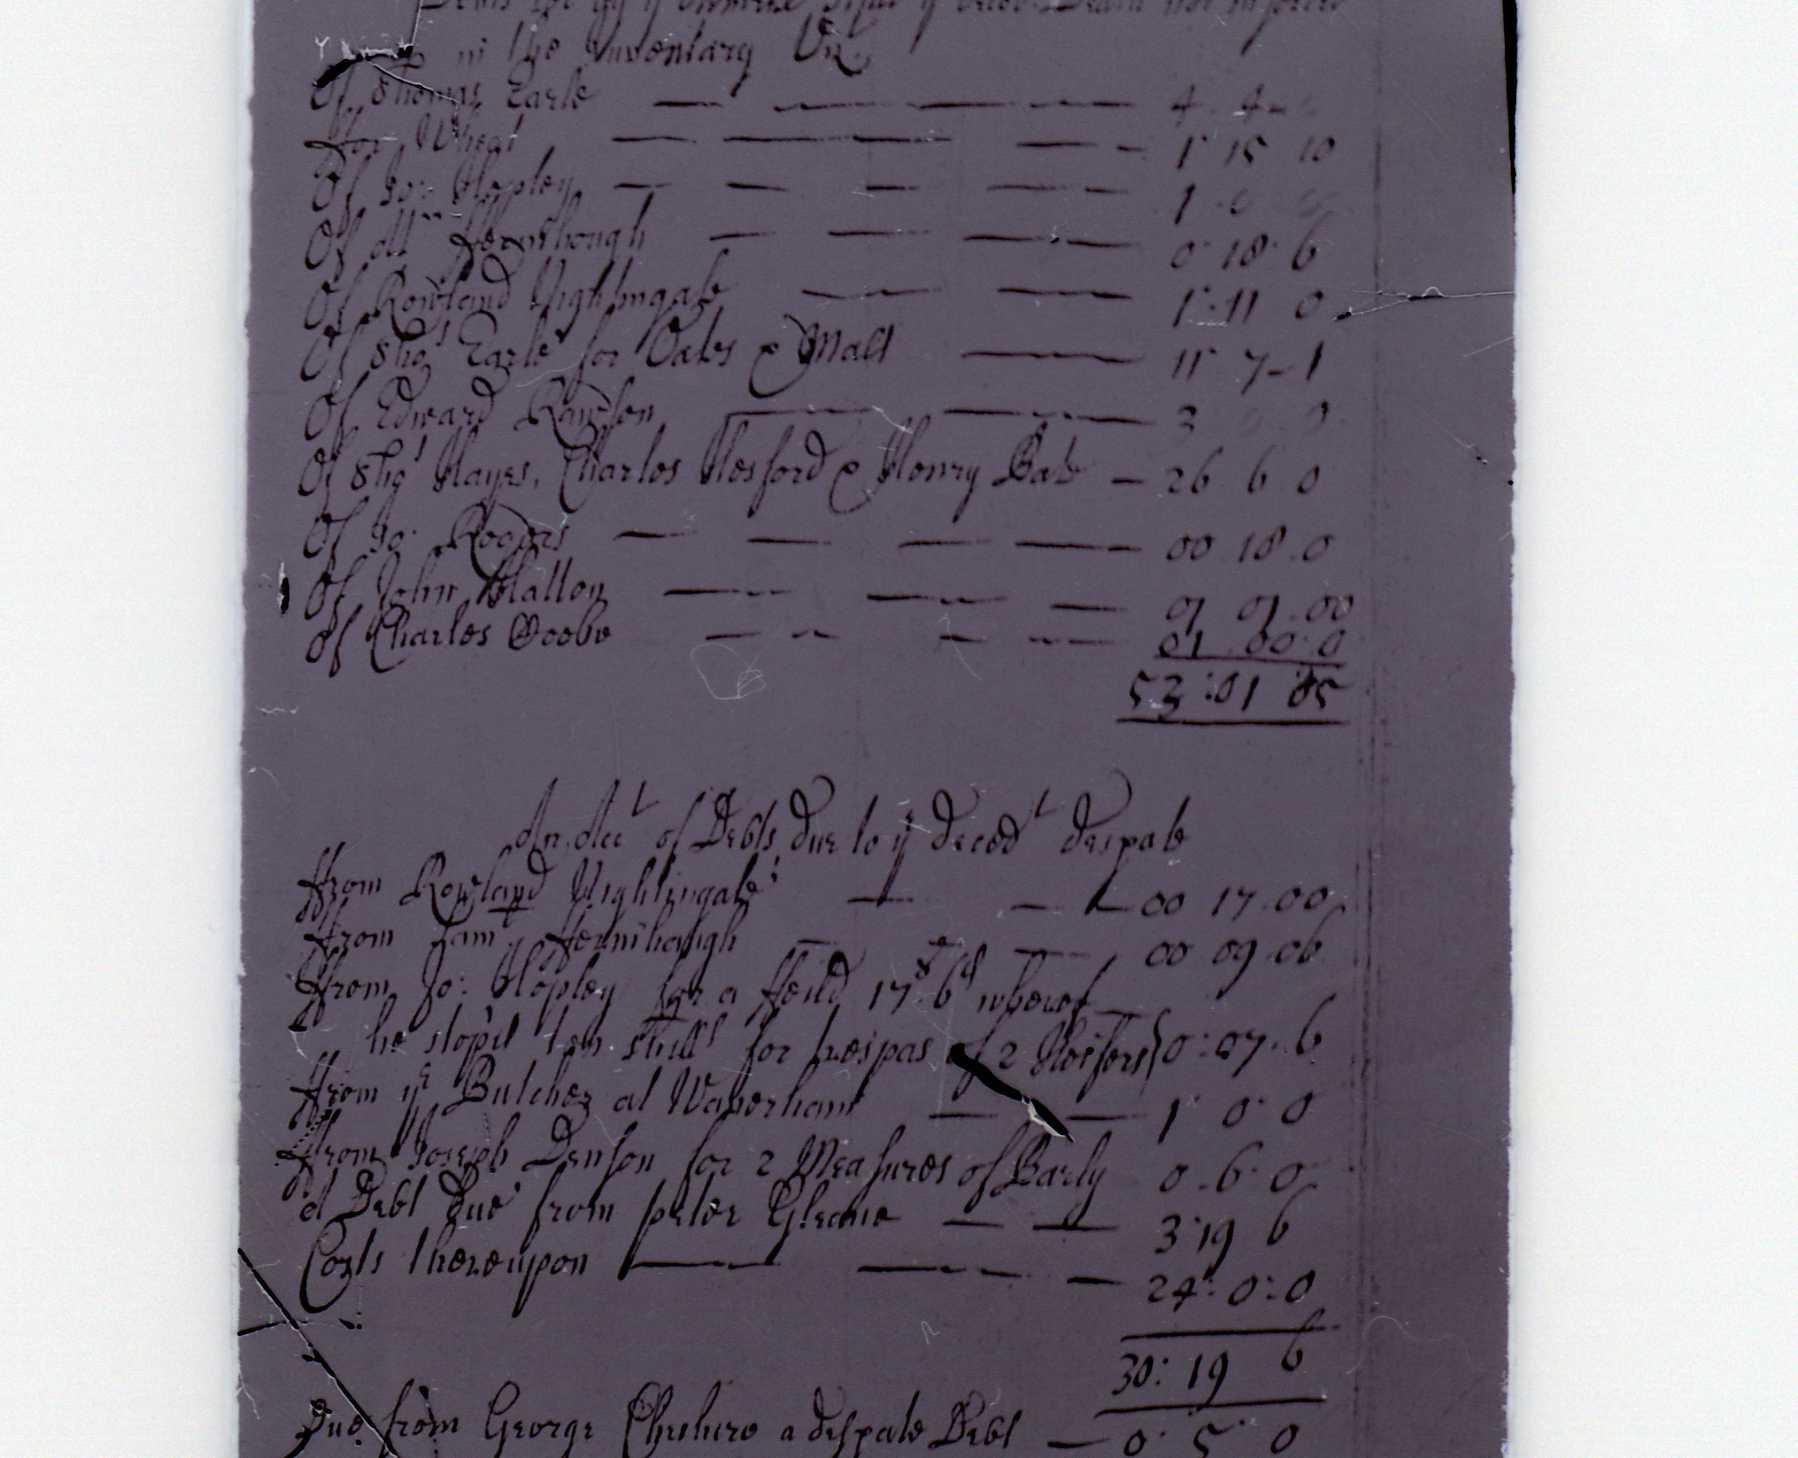 in the Inventary Viz
Of Thomas Earle 4 4
for Wheat 1 15 10
Of Jo: Hopley 1 0 0
Of Mr Hornihough 0 18 6
Of Rowland Nightingale 1 11 0
Of Tho: Earle for Oates & Malt 11 7 1
Of Edward Rawson 3 0 0
Of Tho: Hayes, Charles Hosford & Henry Bate 26 6 0
Of Jo: Rogers 00 18 0
Of John Hatton 01 01 00
of Charles 01 00 0
53 : 01 05
An Acct of Debts due to ye Decedt despate
ffrom Rowland Nightingale 00 17 00
ffrom Sam: Hornihough 00 09 06
ffrom Jo: Hopley for a ffeild 17s 6d whereof
he stopt ten shills for trespas of 2 Heifers 0 : 07 . 6
ffrom ye Butcher at Waverham 1 0 0
ffrom Joseph Denson for 2 Measures of Barly 0 . 6 . 0
A Debt Due from peter Gleave 3 19 6
Costs thereupon 24 : 0 : 0
30 : 19 6
Due from George Cheshire a despate Debt 0 5 0